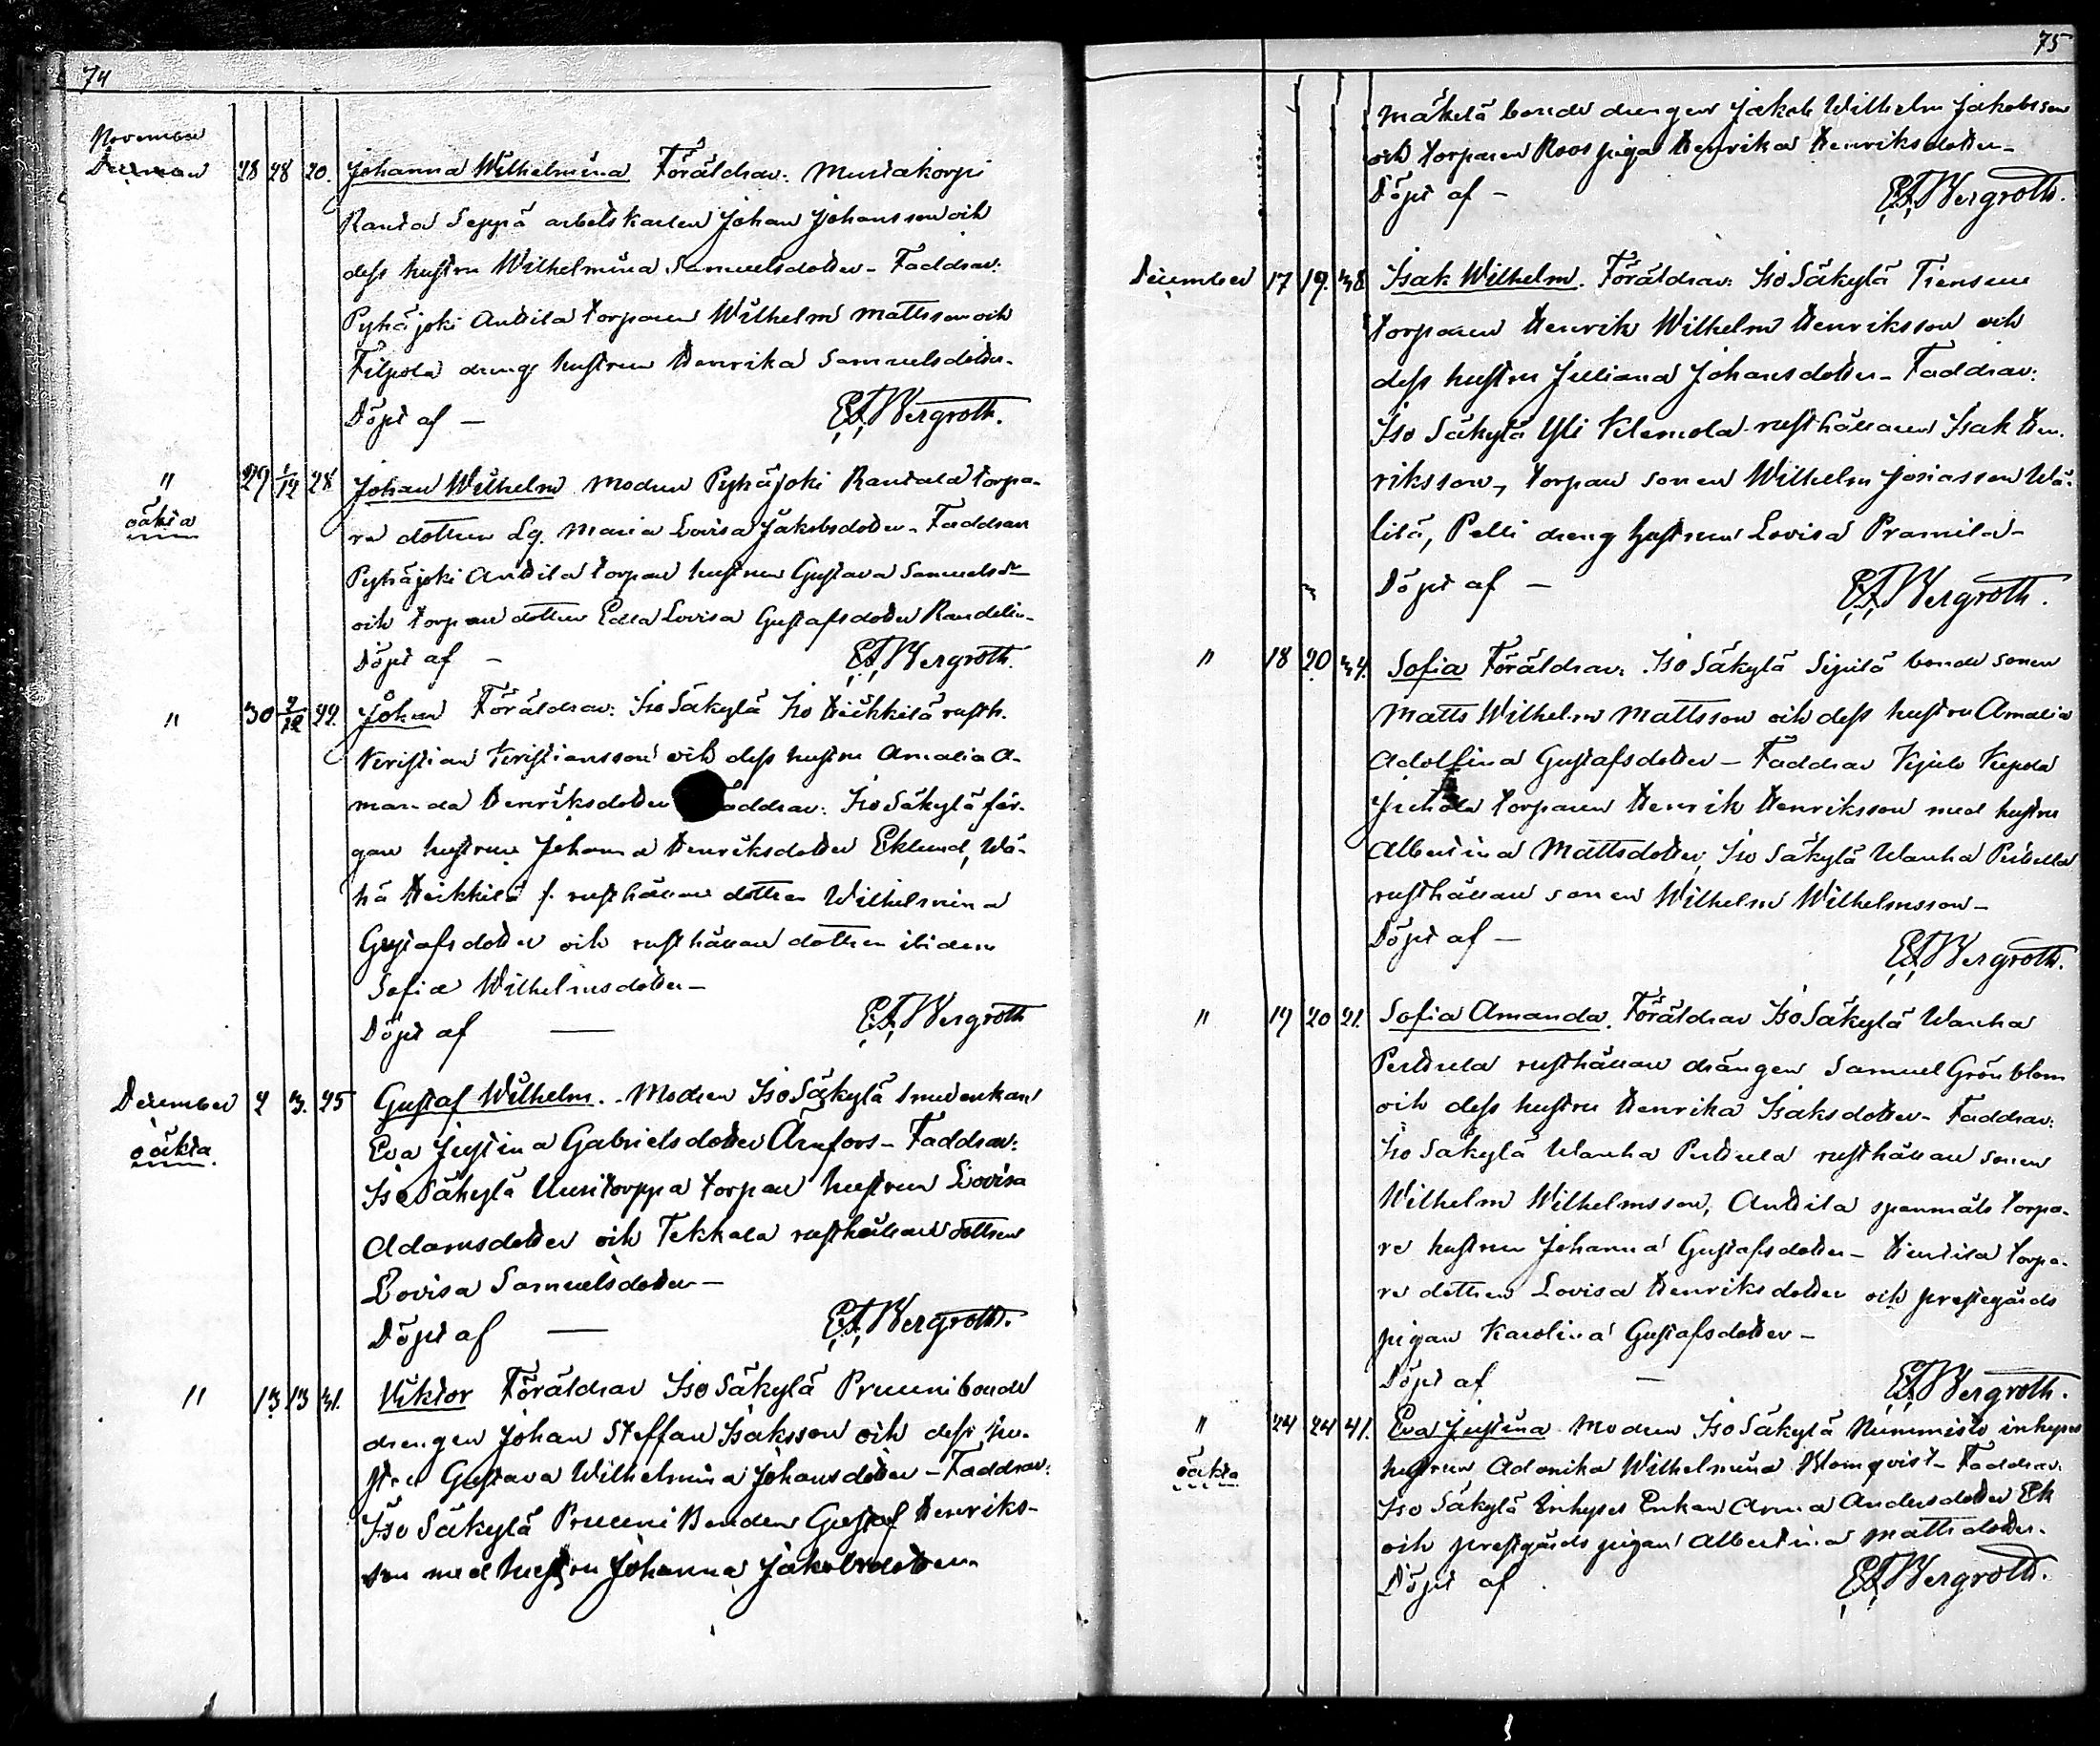 74
November
December 28 28 20. Johanna Wilhelmina Föräldrar: Mustakorpi
Ranta Seppä arbetskarlen Johan Johansson och
dess hustru Wilhelmina Samuelsdotter – Faddrar:
Pyhäjoki Anttila torparen Wilhelm Mattsson och
Filpola dreng hustrun Henrika Samuelsdotter.
Döpt af — E.F. Bergroth.
" 29 1/12 28 Johan Wilhelm Modren Pyhäjoki Rantala torpa-
oäkta re dottren Lg. Maria Lovisa Jakobsdotter – Faddrar
Pyhäjoki Anttila torpare hustrun Gustava Samuelsdr
och torpare dottren Edla Lovisa Gustafsdotter Randelin –
Döpt af – E.F. Bergroth.
" 30 2/12 22. Johan Föräldrar: Iso Säkylä Iso Heikkilä rusth.
Kristian Kristiansson och dess hustru Amalia A-
manda Henriksdotter – Faddrar: Iso Säkylä fär-
gare hustrun Johanna Henriksdotter Eklund, Wä-
hä Heikkilä f. rusthållare dottren Wilhelmina
Gustafsdotter och rusthållare dottren ibidem
Sofia Wilhelmsdotter –
Döpt af — E.F. Bergroth
December 2 3. 25 Gustaf Wilhelm. Modren Iso Säkylä smedenkan
oäkta Eva Justina Gabrielsdotter Åmfors – Faddrar:
Iso Säkylä Uusitorppa torpare hustrun Lovisa
Adamsdotter och Tekkala rusthållare dottren
Lovisa Samuelsdotter –
Döpt af — E.F. Bergroth.
" 13 13 31. Viktor Föräldrar Iso Säkylä Pruuni bonde
drengen Johan Steffan Isaksson och dess hu-
stru Gustava Wilhelmina Johansdotter – Faddrar:
Iso Säkylä Pruuni Bonden Gustaf Henriks-
son med hustru Johanna Jakobsdotter
75
Mäkelä bonde drengen Jakob Wilhelm Jakobsson
och torparen Roos piga Henrika Henriksdotter –
Döpt af – E.F. Bergroth.
December 17 19. 38 Isak Wilhelm. Föräldrar: Iso Säkylä Tiensuu
torparen Henrik Wilhelm Henriksson och
dess hustru Juliana Johansdotter – Faddrar:
Iso Säkylä Yli Klemola rusthållaren Isak Hen-
riksson, torpare sonen Wilhelm Josiasson Wä-
lilä, Pelli dreng hustrun Lovisa Pramila –
Döpt af — E.F. Bergroth.
" 18 20 34. Sofia Föräldrar: Iso Säkylä Sipilä bonde sonen
Matts Wilhelm Mattsson och dess hustru Amalia
Adolfina Gustafsdotter – Faddrar Kjulo Kepola
torparen Henrik Henriksson med hustru
Albertina Mattsdotter, Iso Säkylä Wanha Perttula
rusthållare sonen Wilhelm Wilhelmsson –
Döpt af — E.F. Bergroth.
" 19 20 21. Sofia Amanda. Föräldrar Iso Säkylä Wanha
Perttula rusthållare drängen Samuel Grönblom
och dess hustru Henrika Isaksdotter – Faddrar:
Iso Säkylä Wanha Perttula rusthållare sonen
Wilhelm Wilhelmsson, Anttila spanmåls torpa-
re hustrun Johanna Gustafsdotter – Hentila torpa-
re dottren Lovisa Henriksdotter och prestegårds
pigan Karolina Gustafsdotter –
Döpt af — E.F. Bergroth.
" 24 24 41. Eva Justina Modren Iso Säkylä Nummisto inhyses
oäkta hustrun Adonika Wilhelmina Blomqvist – Faddrar
Iso Säkylä Inhyses Enkan Anna Andersdotter Ek
och prestgårds pigan Albertina Mattsdotter.
Döpt af E.F. Bergroth.